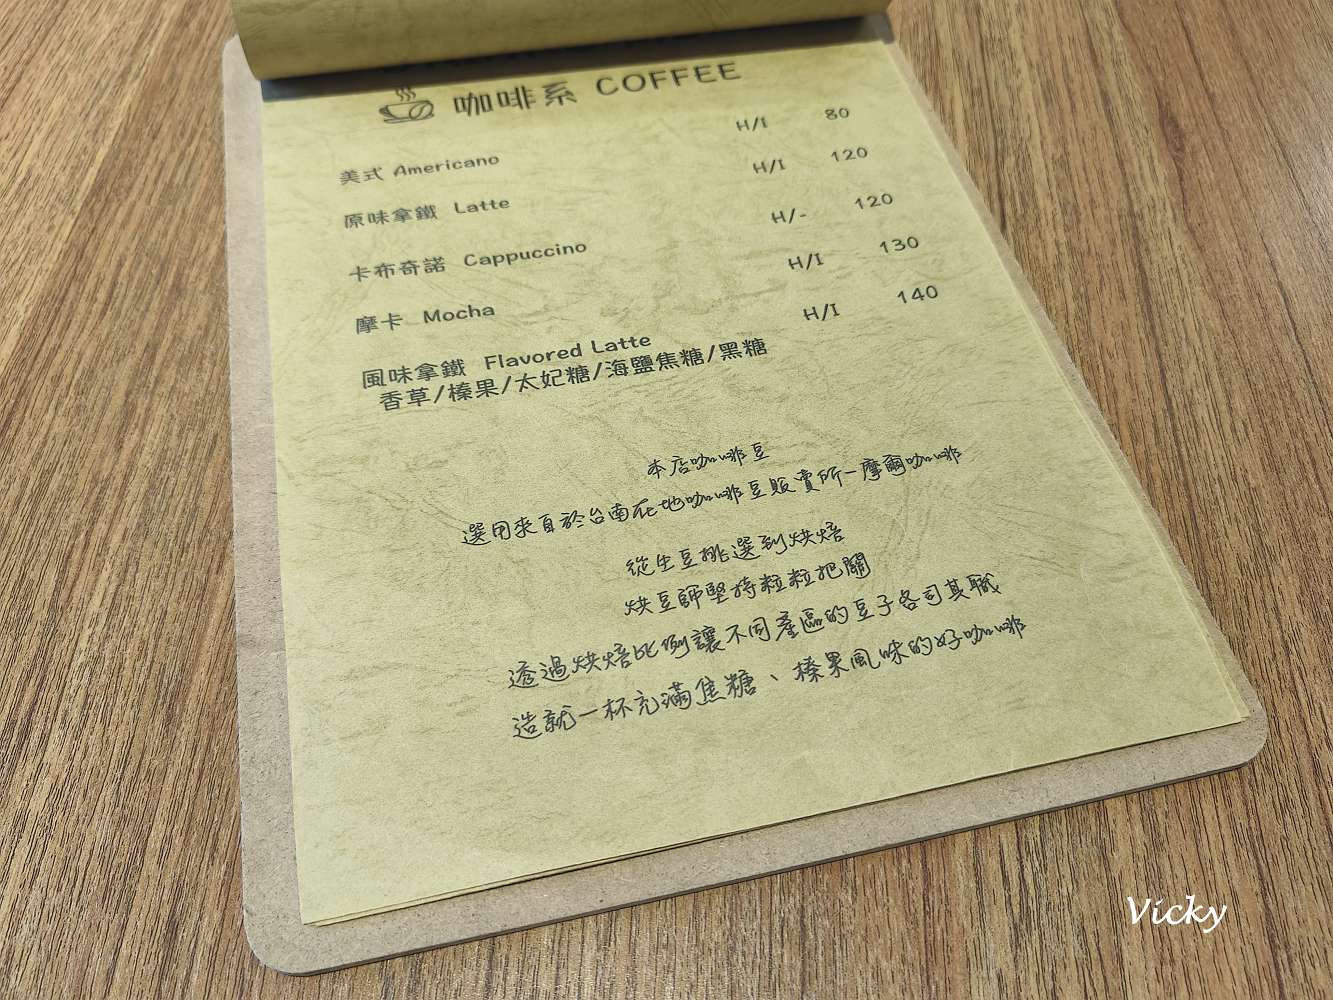 咖啡系 COFFEE
美式 Americano H/I 80
原味拿鐵 Latte H/I 120
卡布奇諾 Cappuccino H/- 120
摩卡 Mocha H/I 130
風味拿鐵 Flavored Latte H/I 140
香草/榛果/太妃糖/海鹽焦糖/黑糖
本店咖啡豆
選用來自於台南在地咖啡豆販賣所-摩爾咖啡
從生豆挑選到烘焙
烘豆師堅持粒粒把關
透過烘焙比例讓不同產區的豆子各司其職
造就一杯充滿焦糖、榛果風味的好咖啡
Vicky